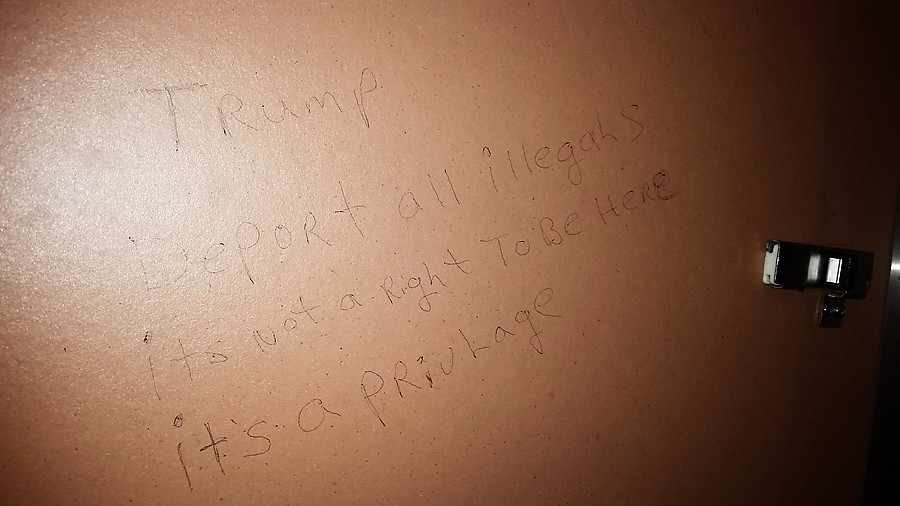 TRump
DepoRt all illegals
Its Not a Right To Be HeRe
it's a PRivlage